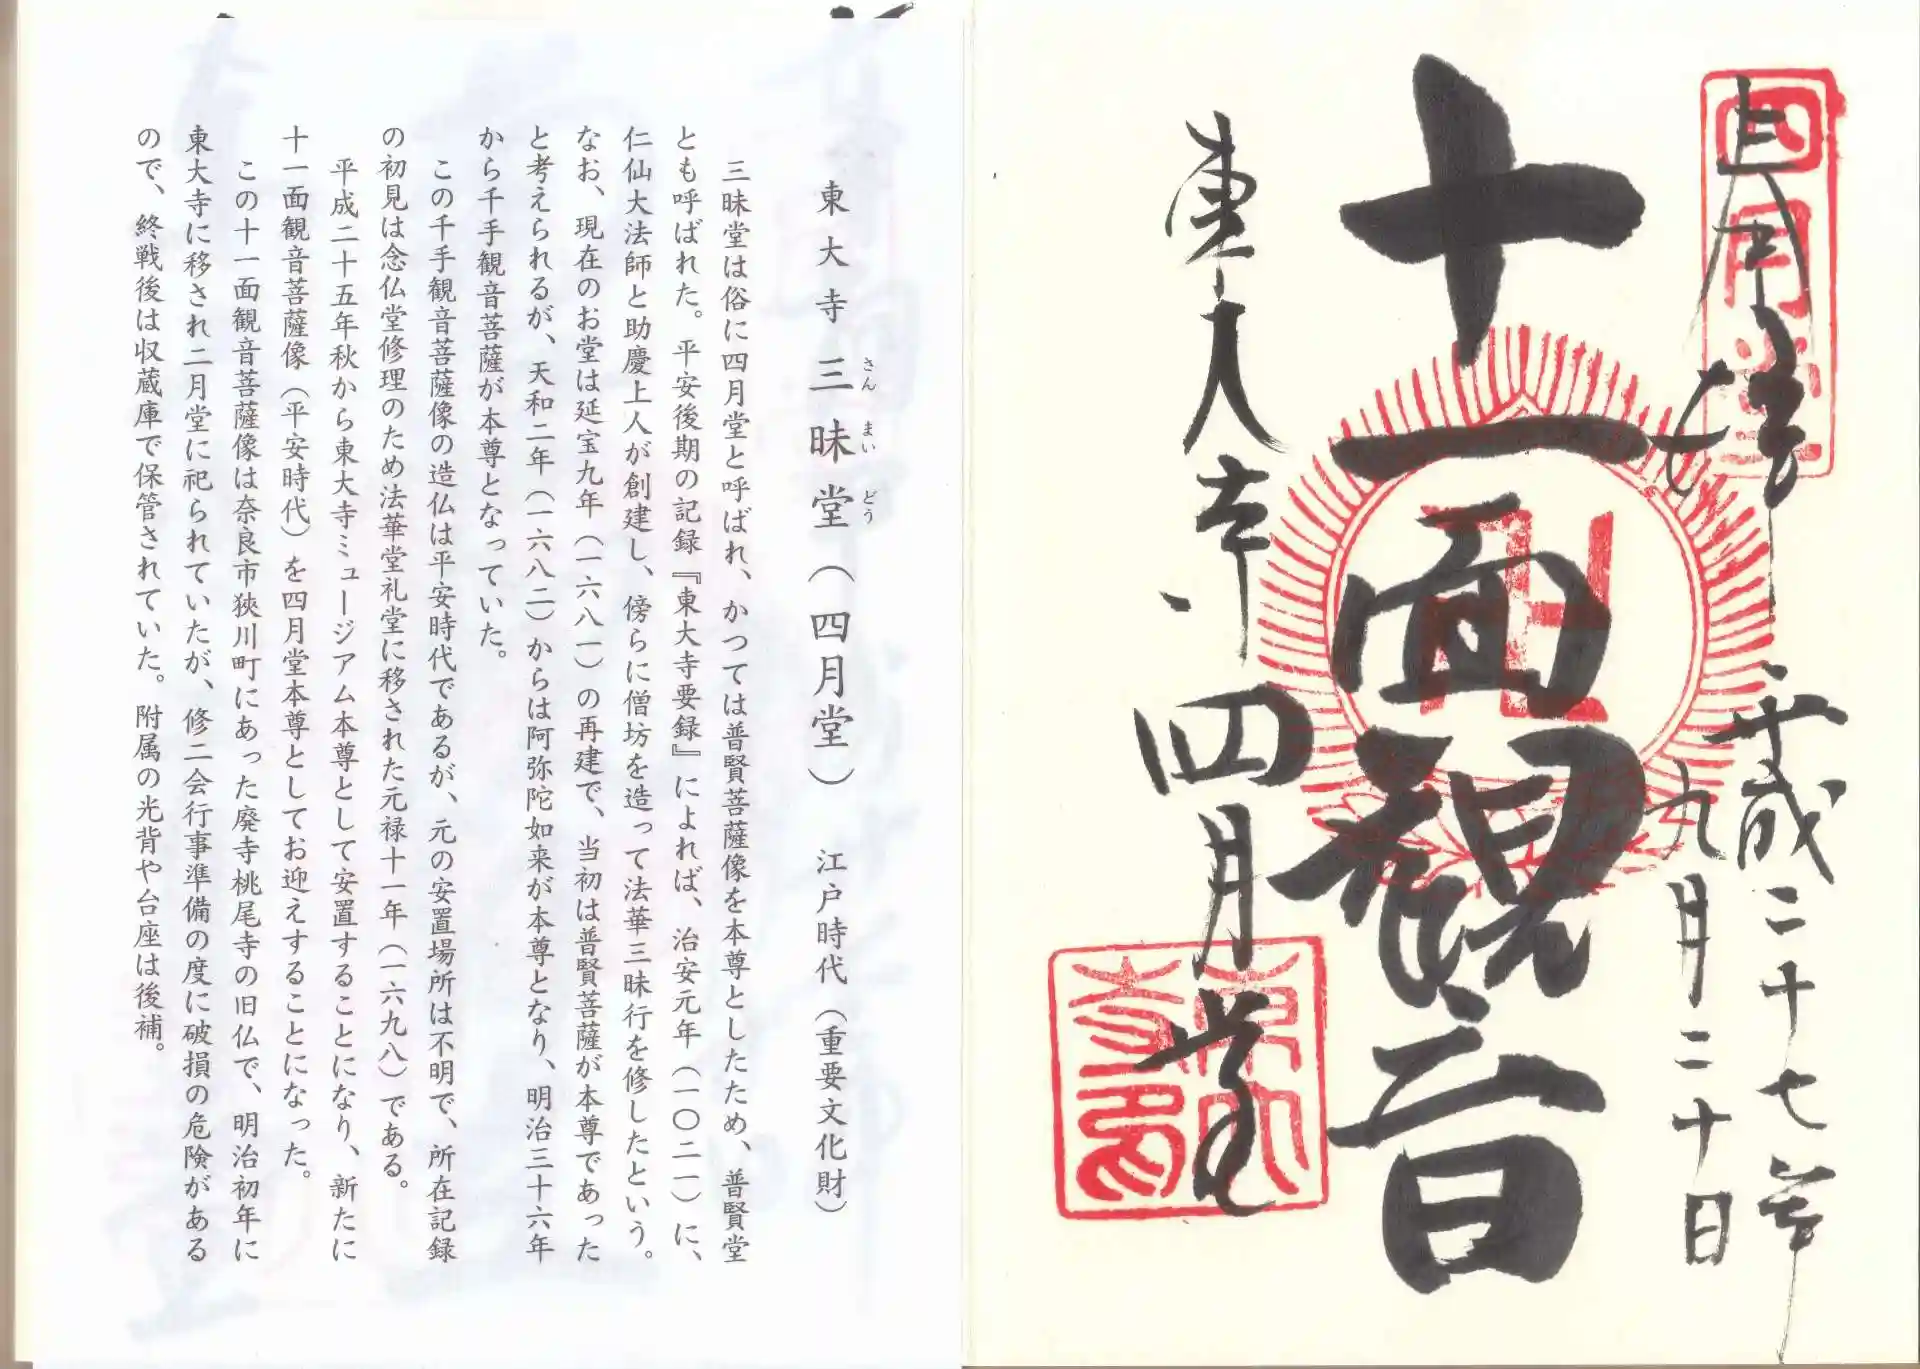 奉拝
四月堂
平成二十七年
九月二十日
十一面観音
東大寺
四月堂
東大寺 三昧堂（四月堂） 江戸時代（重要文化財）
さん まい どう
三昧堂は俗に四月堂と呼ばれ、かつては普賢菩薩像を本尊としたため、普賢堂
とも呼ばれた。平安後期の記録『東大寺要録』によれば、治安元年（一〇二一）に、
仁仙大法師と助慶上人が創建し、傍らに僧坊を造って法華三昧行を修したという。
なお、現在のお堂は延宝九年（一六八一）の再建で、当初は普賢菩薩が本尊であった
と考えられるが、天和二年（一六八二）からは阿弥陀如来が本尊となり、明治三十六年
から千手観音菩薩が本尊となっていた。
この千手観音菩薩像の造仏は平安時代であるが、元の安置場所は不明で、所在記録
の初見は念仏堂修理のため法華堂礼堂に移された元禄十一年（一六九八）である。
平成二十五年秋から東大寺ミュージアム本尊として安置することになり、新たに
十一面観音菩薩像（平安時代）を四月堂本尊としてお迎えすることになった。
この十一面観音菩薩像は奈良市狹川町にあった廃寺桃尾寺の旧仏で、明治初年に
東大寺に移され二月堂に祀られていたが、修二会行事準備の度に破損の危険がある
ので、終戦後は収蔵庫で保管されていた。附属の光背や台座は後補。